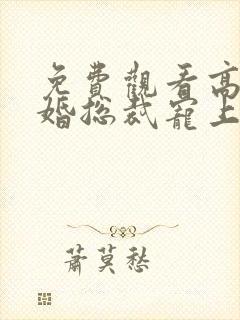 免費觀看高
婚總裁寵上
蕭莫愁